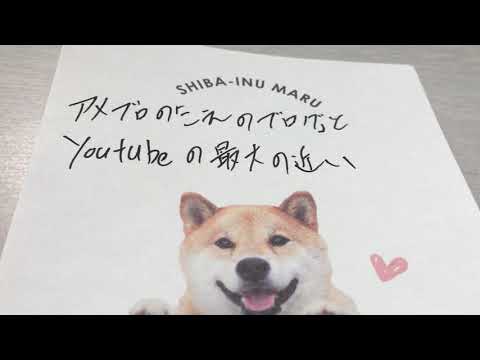 SHIBA-INU MARU
アメブロの「こえのブログ」と
Youtubeの最大の近い